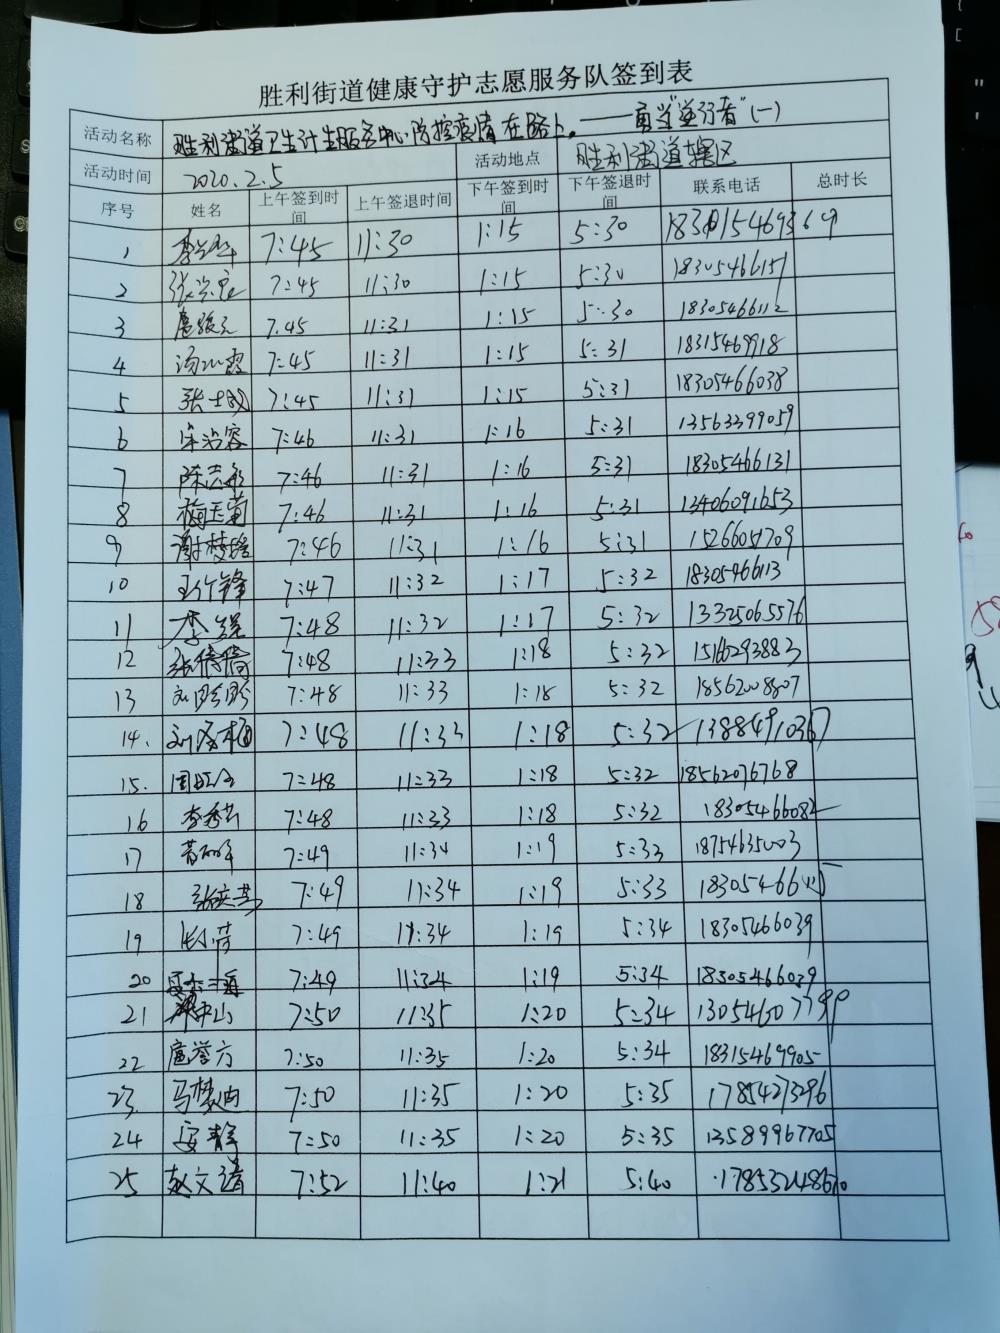 胜利街道健康守护志愿服务队签到表
活动名称 胜利街道卫生计生服务中心防控疫情在路上。——勇当"逆行者"(一)
活动时间 2020.2.5 活动地点 胜利街道辖区
序号 姓名 上午签到时间 上午签退时间 下午签到时间 下午签退时间 联系电话 总时长
1 7:45 11:30 1:15 5:30
2 7:45 11:30 1:15 5:30 18305466151
3 7.45 11:31 1:15 5:30 18305466112
4 7:45 11:31 1:15 5:31 18315469918
5 7:45 11:31 1:15 5:31 18305466038
6 7:46 11:31 1:16 5:31 13563399059
7 陈志彬 7:46 11:31 1:16 5:31 18305466131
8 梅玉菊 7:46 11:31 1:16 5:31 13406091653
9 7:46 11:31 1:16 5:31 15266051709
10 7:47 11:32 1:17 5:32 18305466113
11 李 7:48 11:32 1:17 5:32 13325065576
12 张倩倩 7:48 11:33 1:18 5:32 15160293883
13 7:48 11:33 1:18 5:32 18562008807
14. 7:48 11:33 1:18 5:32 13884910367
15. 7:48 11:33 1:18 5:32 18562076768
16 李秀芸 7:48 11:33 1:18 5:32 18305466082
17 7:49 11:34 1:19 5:33 18754635003
18 7:49 11:34 1:19 5:33
19 7:49 11:34 1:19 5:34 18305466039
20 7:49 11:34 1:19 5:34 18305466039
21 7:50 11:35 1:20 5:34 13054607799
22 扈誉方 7:50 11:35 1:20 5:34 18315469905
23. 马梦迪 7:50 11:35 1:20 5:35 17854273296
24 安静 7:50 11:35 1:20 5:35 13589967705
25 赵文清 7:52 11:40 1:21 5:40